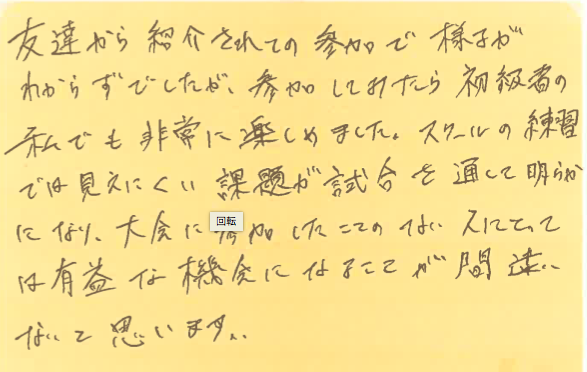 友達から紹介されての参加で様子が
わからずでしたが、参加してみたら初級者の
私でも非常に楽しめました。スクールの練習
では見えにくい課題が試合を通して明らか
になり、大会に参加したことのない人にとって
は有益な機会になることが間違い
ないと思います。
回転